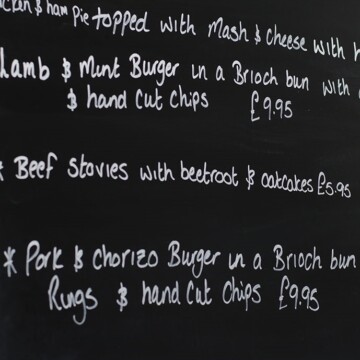 & ham Pie topped with Mash & Cheese with
Lamb & Mint Burger in a Brioch bun with
& hand Cut Chips £9.95
* Beef Stovies with beetroot & oatcakes £5.95
* Pork & chorizo Burger in a Brioch bun
Rings & hand Cut Chips £9.95